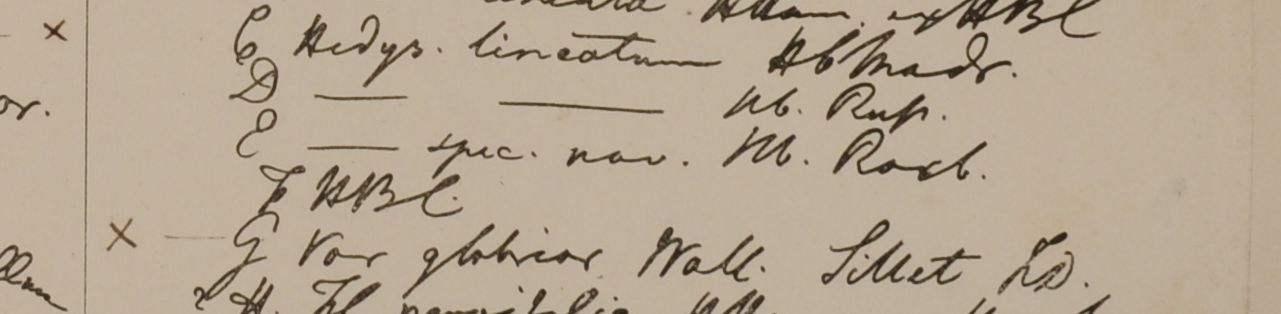 Ham. ex HBC
C Hedys. lineatum Hb Madr.
D — — Hb. Rup.
E — spec. nov. Hb. Roxb.
F HBC.
or.
× G Var glabrior Wall. Sillet FD.
H. Fl